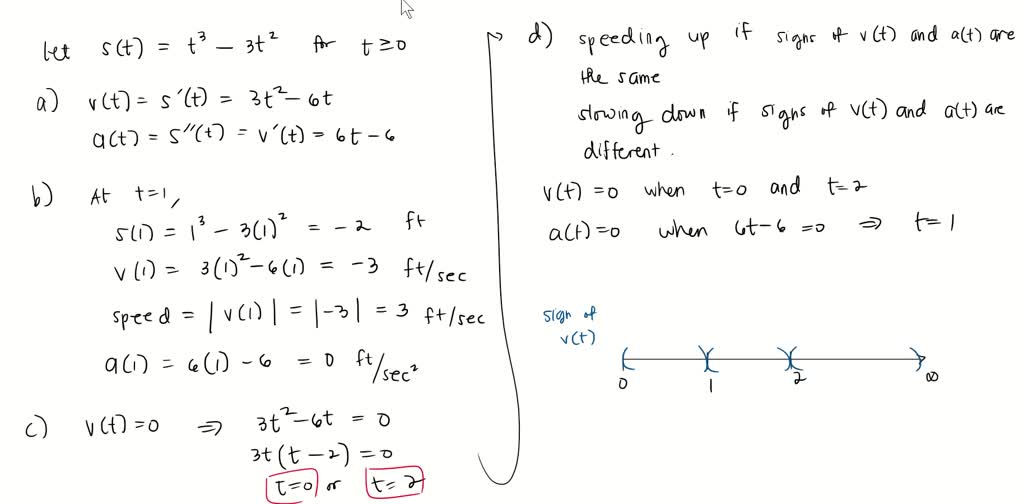 let s(t) = t³ - 3t² for t ≥ 0
a) v(t) = s'(t) = 3t² - 6t
a(t) = s''(t) = v'(t) = 6t - 6
b) At t=1,
s(1) = 1³ - 3(1)² = -2 ft
v(1) = 3(1)² - 6(1) = -3 ft/sec
speed = |v(1)| = |-3| = 3 ft/sec
a(1) = 6(1) - 6 = 0 ft/sec²
c) v(t)=0 ⇒ 3t² - 6t = 0
3t(t-2) = 0
t=0 or t=2
d) speeding up if signs of v(t) and a(t) are
the same
slowing down if signs of v(t) and a(t) are
different.
v(t) = 0 when t=0 and t=2
a(t)=0 when 6t-6 =0 ⇒ t=1
sign of
v(t)
0 1 2 ∞